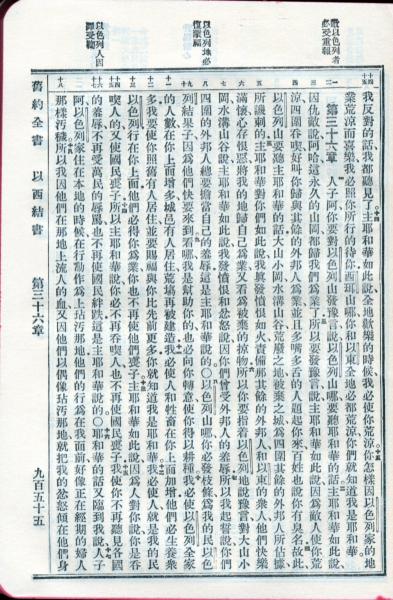 以色列者
必受重報
以色列地必
復蒙福
以色列人因
罪受報
我反對的話我都聽見了主耶和華如此說全地歡樂的時候我必使你荒涼你怎樣因以色列家的地
業荒涼而喜樂我必照你所行的待你西珥山哪你和以東全地必都荒涼你們就知道我是耶和華
第三十六章 人子阿你要對以色列山發豫言說以色列山哪要聽耶和華的話主耶和華如此說
因仇敵說阿哈這永久的山岡都歸我們爲業了所以要發豫言說主耶和華如此說因爲敵人使你荒
涼四圍吞喫好叫你歸與其餘的外邦人爲業並且多嘴多舌的人題起你來百姓也說你有臭名故此
以色列山要聽主耶和華的話大山小岡水溝山谷荒廢之地被棄之城爲四圍其餘的外邦人所佔據
所譏刺的主耶和華對你們如此說我眞發憤恨如火責備那其餘的外邦人和以東的衆人他們快樂
滿懷心存恨惡將我的地歸自己爲業又看爲被棄的掠物所以你要指着以色列地說豫言對大山小
岡水溝山谷說主耶和華如此說我發憤恨和忿怒說因你們曾受外邦人的羞辱所以我起誓說你們
四圍的外邦人總要擔當自己的羞辱這是主耶和華說的○以色列山哪你必發枝條爲我的民以色
列結果子因爲他們快要來到看哪我是幫助你的也必向你轉意使你得以耕種我必使以色列全家
的人數在你上面增多城邑有人居住荒場再被建造我必使人和牲畜在你上面加增他們必生養衆
多我要使你照舊有人居住並要賜福與你比先前更多你就知道我是耶和華我必使人就是我的民
以色列行在你上面他們必得你爲業你也不再使他們喪子主耶和華如此說因爲人對你說你是吞
喫人的又使國民喪子所以主耶和華說你必不再吞喫人也不再使國民喪子我使你不再聽見各國
的羞辱不再受萬民的辱罵也不再使國民絆跌這是主耶和華說的○耶和華的話又臨到我說人子
阿以色列家住在本地的時候在行動作爲上玷汚那地他們的行爲在我面前好像正在經期的婦人
那樣汚穢所以我因他們在那地上流人的血又因他們以偶像玷汚那地就把我的忿怒傾在他們身
舊約全書 以西結書 第三十六章 九百五十五